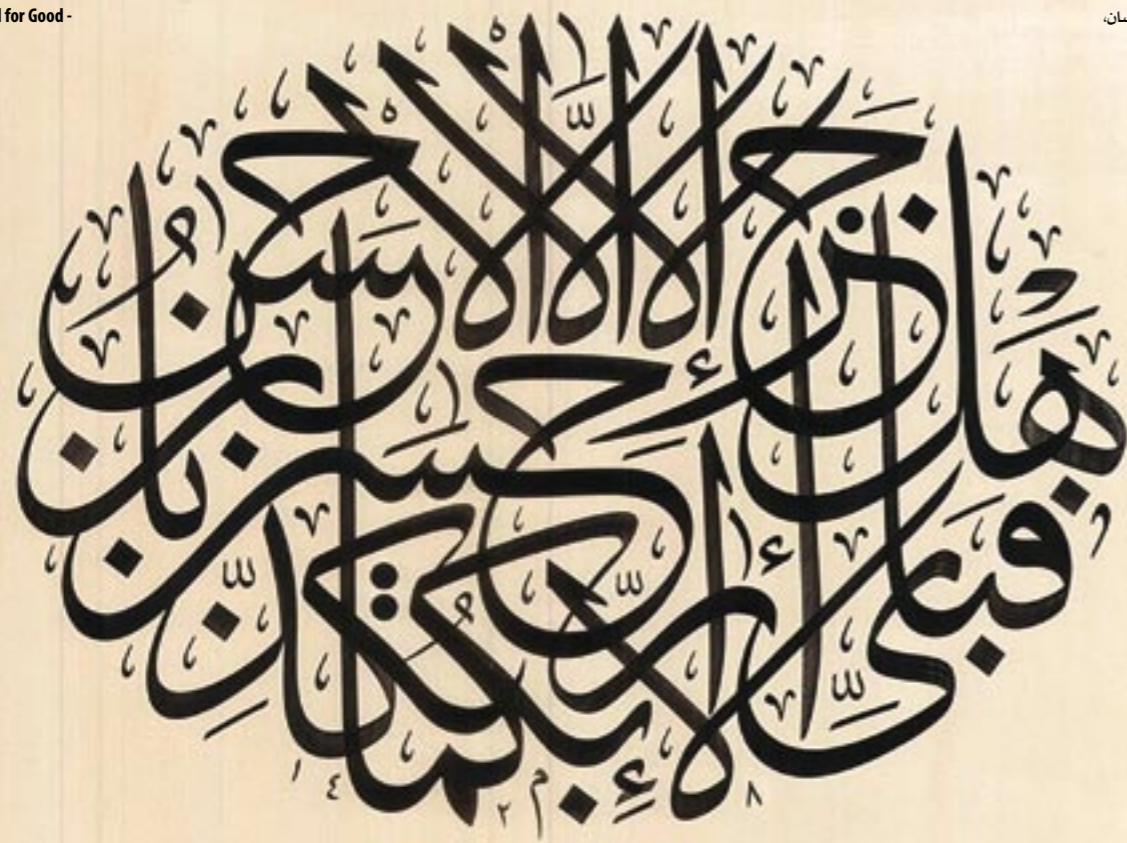 d for Good -
سان،
هَلْ جَزَاءُ الْإِحْسَانِ إِلَّا الْإِحْسَانُ
فَبِأَيِّ آلَاءِ رَبِّكُمَا تُكَذِّبَانِ